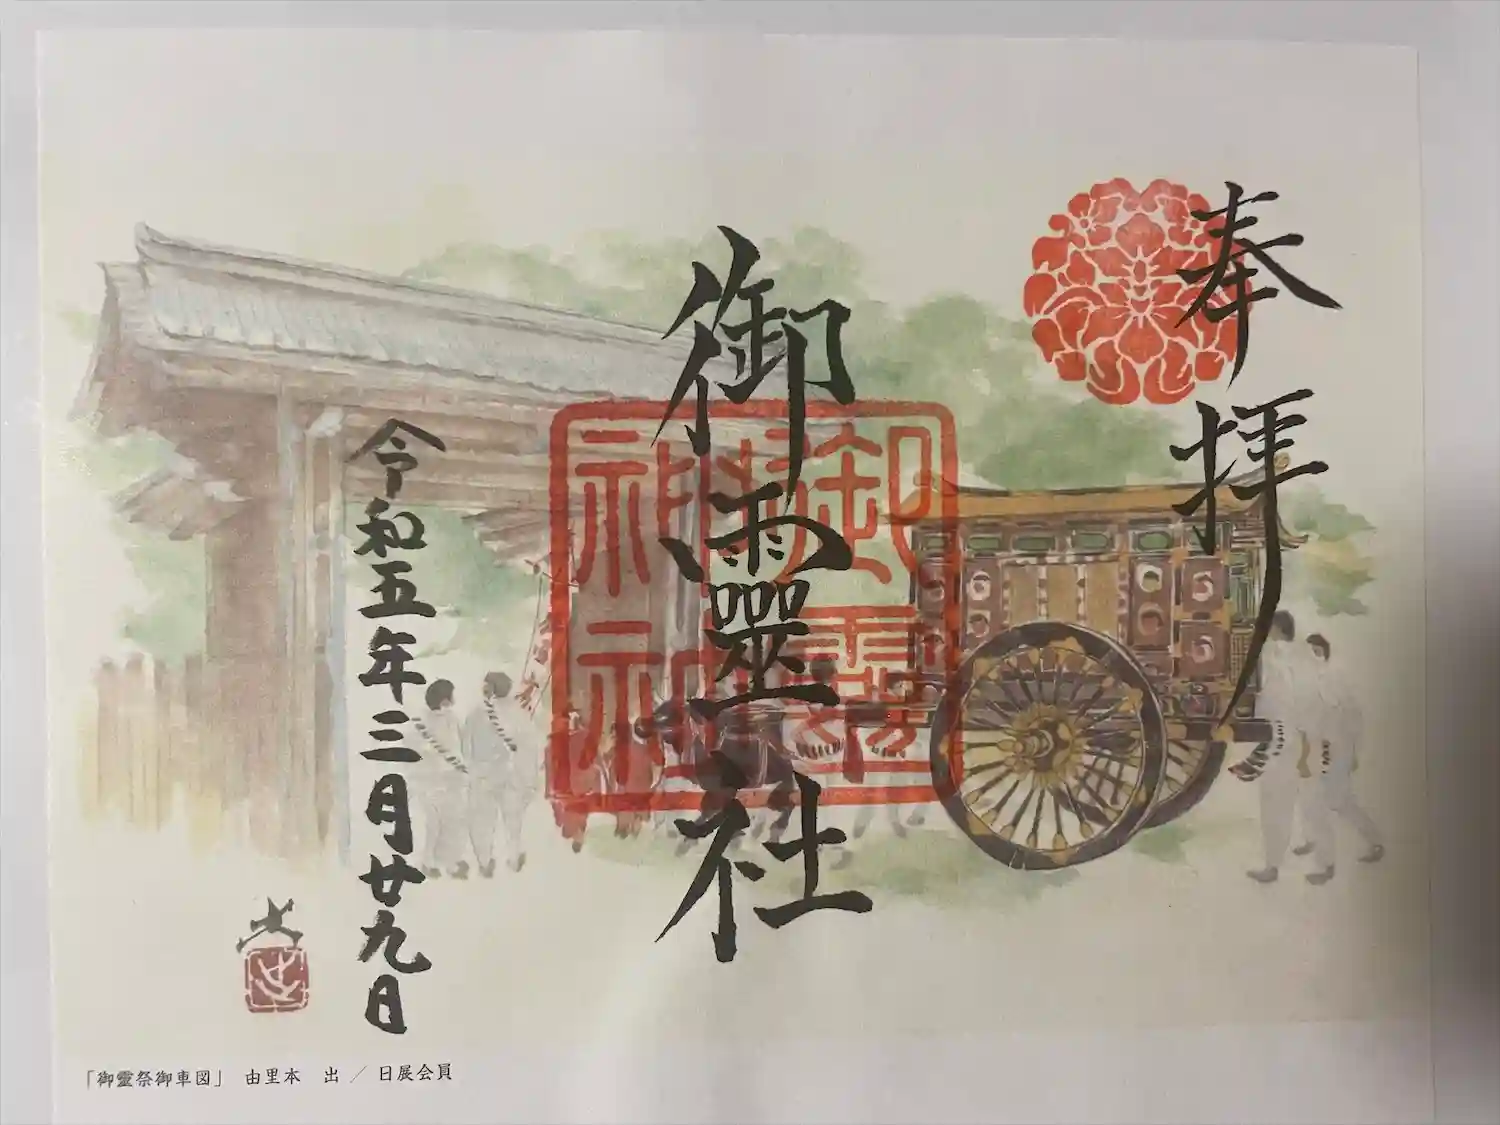 奉拝
御靈社
令和五年三月廿九日
「御霊祭御車図」 由里本 出 / 日展会員